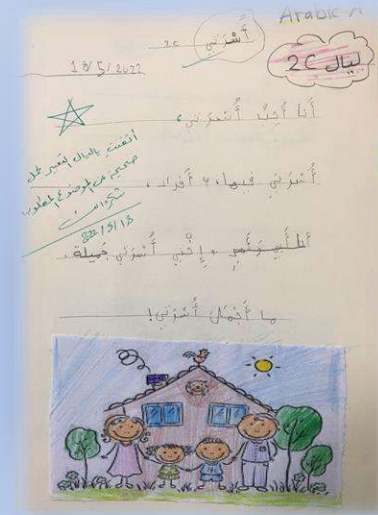 Arabic
أُسْرَتي 2C
ليال 2C
13/5/2022
أَنا أُحِبُّ أُسْرَتي،
أُسْرَتي فيها ٤ أَفْراد،
إِخْتي أُسْرَتي جَميلة.
ما أَجْمَلَ أُسْرَتي!
أتقنتِ يا ليال التعبير بجمل
صحيحة عن الموضوع المطلوب
22/5/13